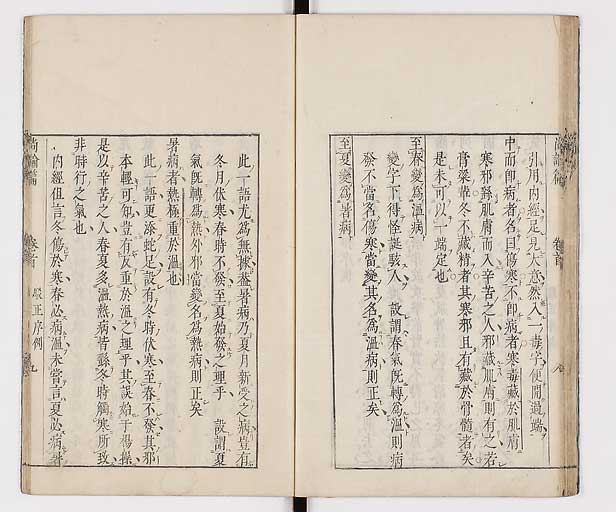 引用內經足見大意然入一毒字便開過端
中而卽病者名曰傷寒不卽病者寒毒藏於肌膚
寒邪繇肌膚而入辛苦之人邪藏肌膚則有之若
膏粱輩冬不藏精者其寒邪且有藏於骨髓者矣
是未可以一端定也
至春變爲溫病
變字下得怪誕駭人 設謂春氣旣轉爲溫則病
發不當名傷寒當變其名爲溫病則正矣
至夏變爲暑病
此一語尤爲無據葢暑病乃夏月新受之病豈有
冬月伏寒春時不發至夏始發之理乎 設謂夏
氣旣轉爲熱外邪當變名爲熱病則正矣
暑病者熱極重於溫也
此一語更添蛇足設有冬時伏寒至春不發其邪
本輕可知豈有反重於溫之理乎其誤始于楊操
是以辛苦之人春夏多溫熱病皆繇冬時觸寒所致
非時行之氣也
內經但言冬傷於寒春必病溫未嘗言夏必病暑
尚論篇 卷首 嚴正序例 九
尚論篇 卷首